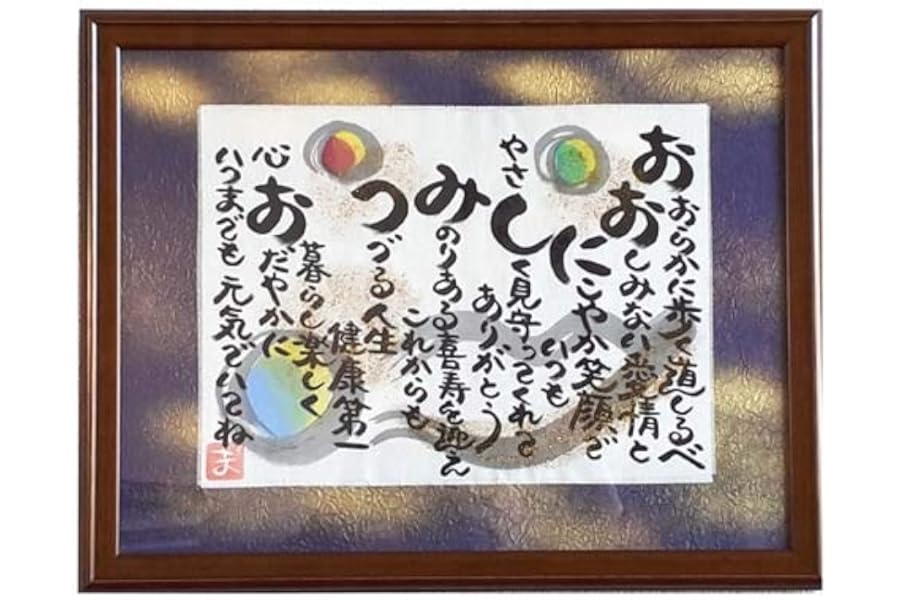 おおらかに歩く道しるべ
おしみない愛情と
にこやか笑顔で
いつも
やさしく見守ってくれて
ありがとう
みのりある喜寿を迎え
これからも
つづる人生
健康第一
暮らし楽しく
心おだやかに
いつまでも元気でいてね
ま